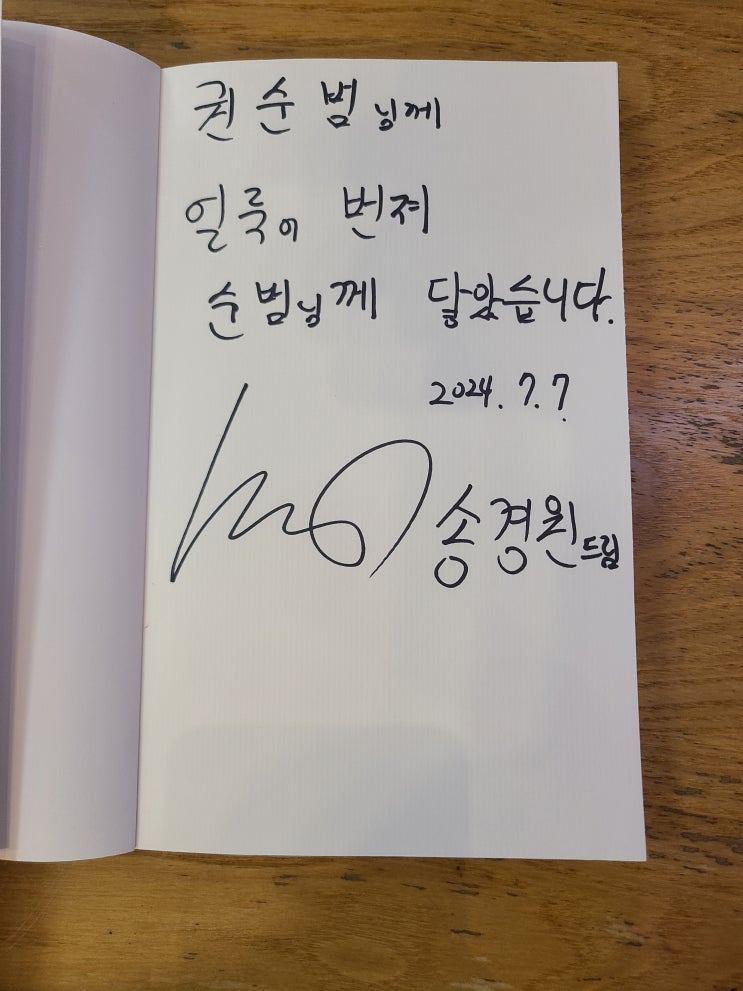 권순범님께
얼룩이 번져
순범님께 닿았습니다.
2024. 7. 7.
송경원 드림